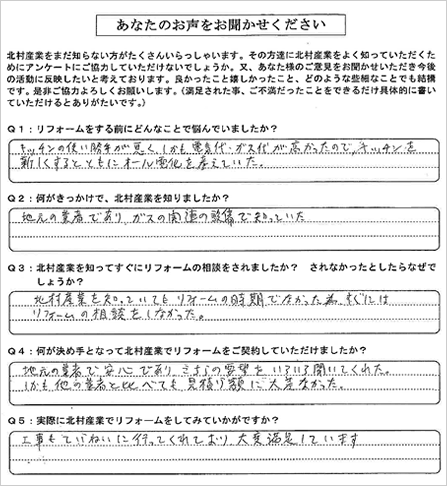 あなたのお声をお聞かせください
北村産業をまだ知らない方がたくさんいらっしゃいます。その方達に北村産業をよく知っていただくた
めにアンケートにご協力していただけないでしょうか。又、あなた様のご意見をお聞かせいただき今後
の活動に反映したいと考えております。良かったこと嬉しかったこと、どのような些細なことでも結構
です。是非ご協力よろしくお願いします。（満足された事、ご不満だったことをできるだけ具体的に書い
ていただけるとありがたいです。）
Q1：リフォームをする前にどんなことで悩んでいましたか？
キッチンの使い勝手が悪く、しかも電気代・ガス代が高かったので、キッチンを
新しくするとともにオール電化を考えていた。
Q2：何がきっかけで、北村産業を知りましたか？
地元の業者であり、ガスの関連の設備で知っていた
Q3：北村産業を知ってすぐにリフォームの相談をされましたか？　されなかったとしたらなぜで
しょうか？
北村産業を知っていてもリフォームの時期でなかった為、すぐには
リフォームの相談をしなかった。
Q4：何が決め手となって北村産業でリフォームをご契約していただけましたか？
地元の業者で安心であり、こちらの要望をいろいろ聞いてくれた。
しかも他の業者と比べても見積り額に大差なかった。
Q5：実際に北村産業でリフォームをしてみていかがですか？
工事もていねいに行ってくれており、大変満足しています